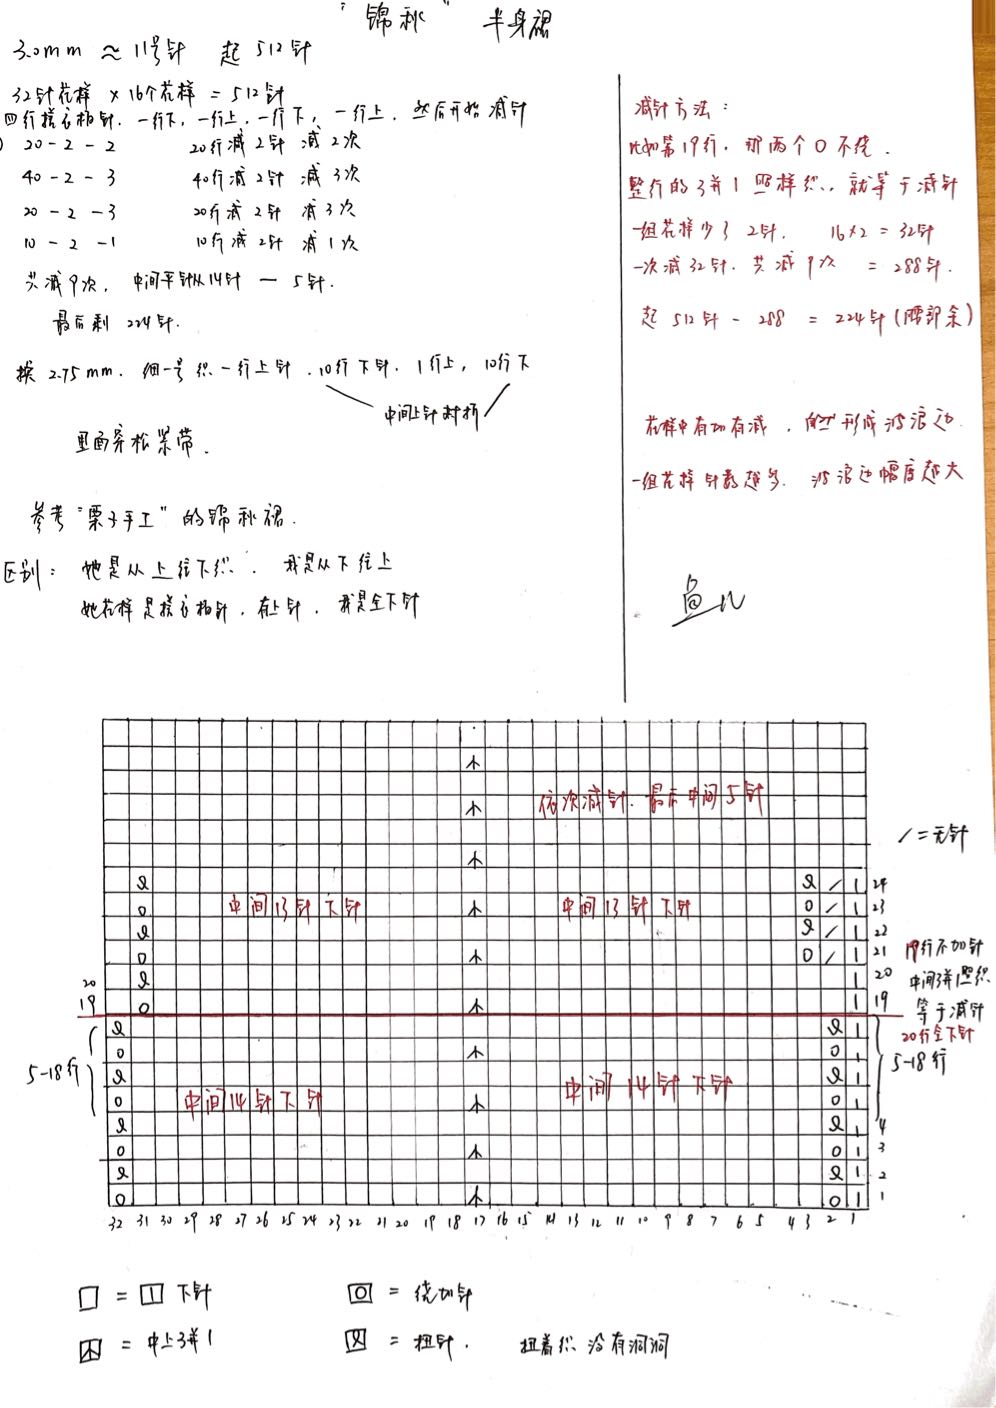 "锦秋" 半身裙
3.0mm ≈ 11号针 起512针
32针花样 × 16个花样 = 512针
四行搓衣板针. 一行下, 一行上, 一行下, 一行上. 然后开始减针
20-2-2 20行减2针 减2次
40-2-3 40行减2针 减3次
20-2-3 20行减2针 减3次
10-2-1 10行减2针 减1次
共减9次, 中间平针从14针 — 5针.
最后剩 224针.
换 2.75mm. 细一号 织一行上针. 10行下针. 1行上, 10行下
中间上针对折
里面穿松紧带.
参考"栗子手工"的锦秋裙.
区别: 她是从上往下织. 我是从下往上
她花样是搓衣板针, 有上针. 我是全下针
减针方法:
比如第19行. 那两个O不绕.
整行的3并1照样织. 就等于减针
一组花样少了2针. 16×2=32针
一次减32针. 共减9次 = 288针.
起 512针 - 288 = 224针 (腰部余)
花样中有加有减, 自然形成波浪边.
一组花样针数越多. 波浪边幅度越大
依次减针. 最后中间5针
/ = 无针
中间13针下针 中间13针下针
24
23
22
21
20
19
20
19
19行不加针
中间3并1照织.
等于减针
20行全下针
5-18行
5-18行
中间14针下针 中间14针下针
4
3
2
1
32 31 30 29 28 27 26 25 24 23 22 21 20 19 18 17 16 15 14 13 12 11 10 9 8 7 6 5 4 3 2 1
= 下针 = 绕加针
= 中上3并1 = 扭针. 扭着织 没有洞洞